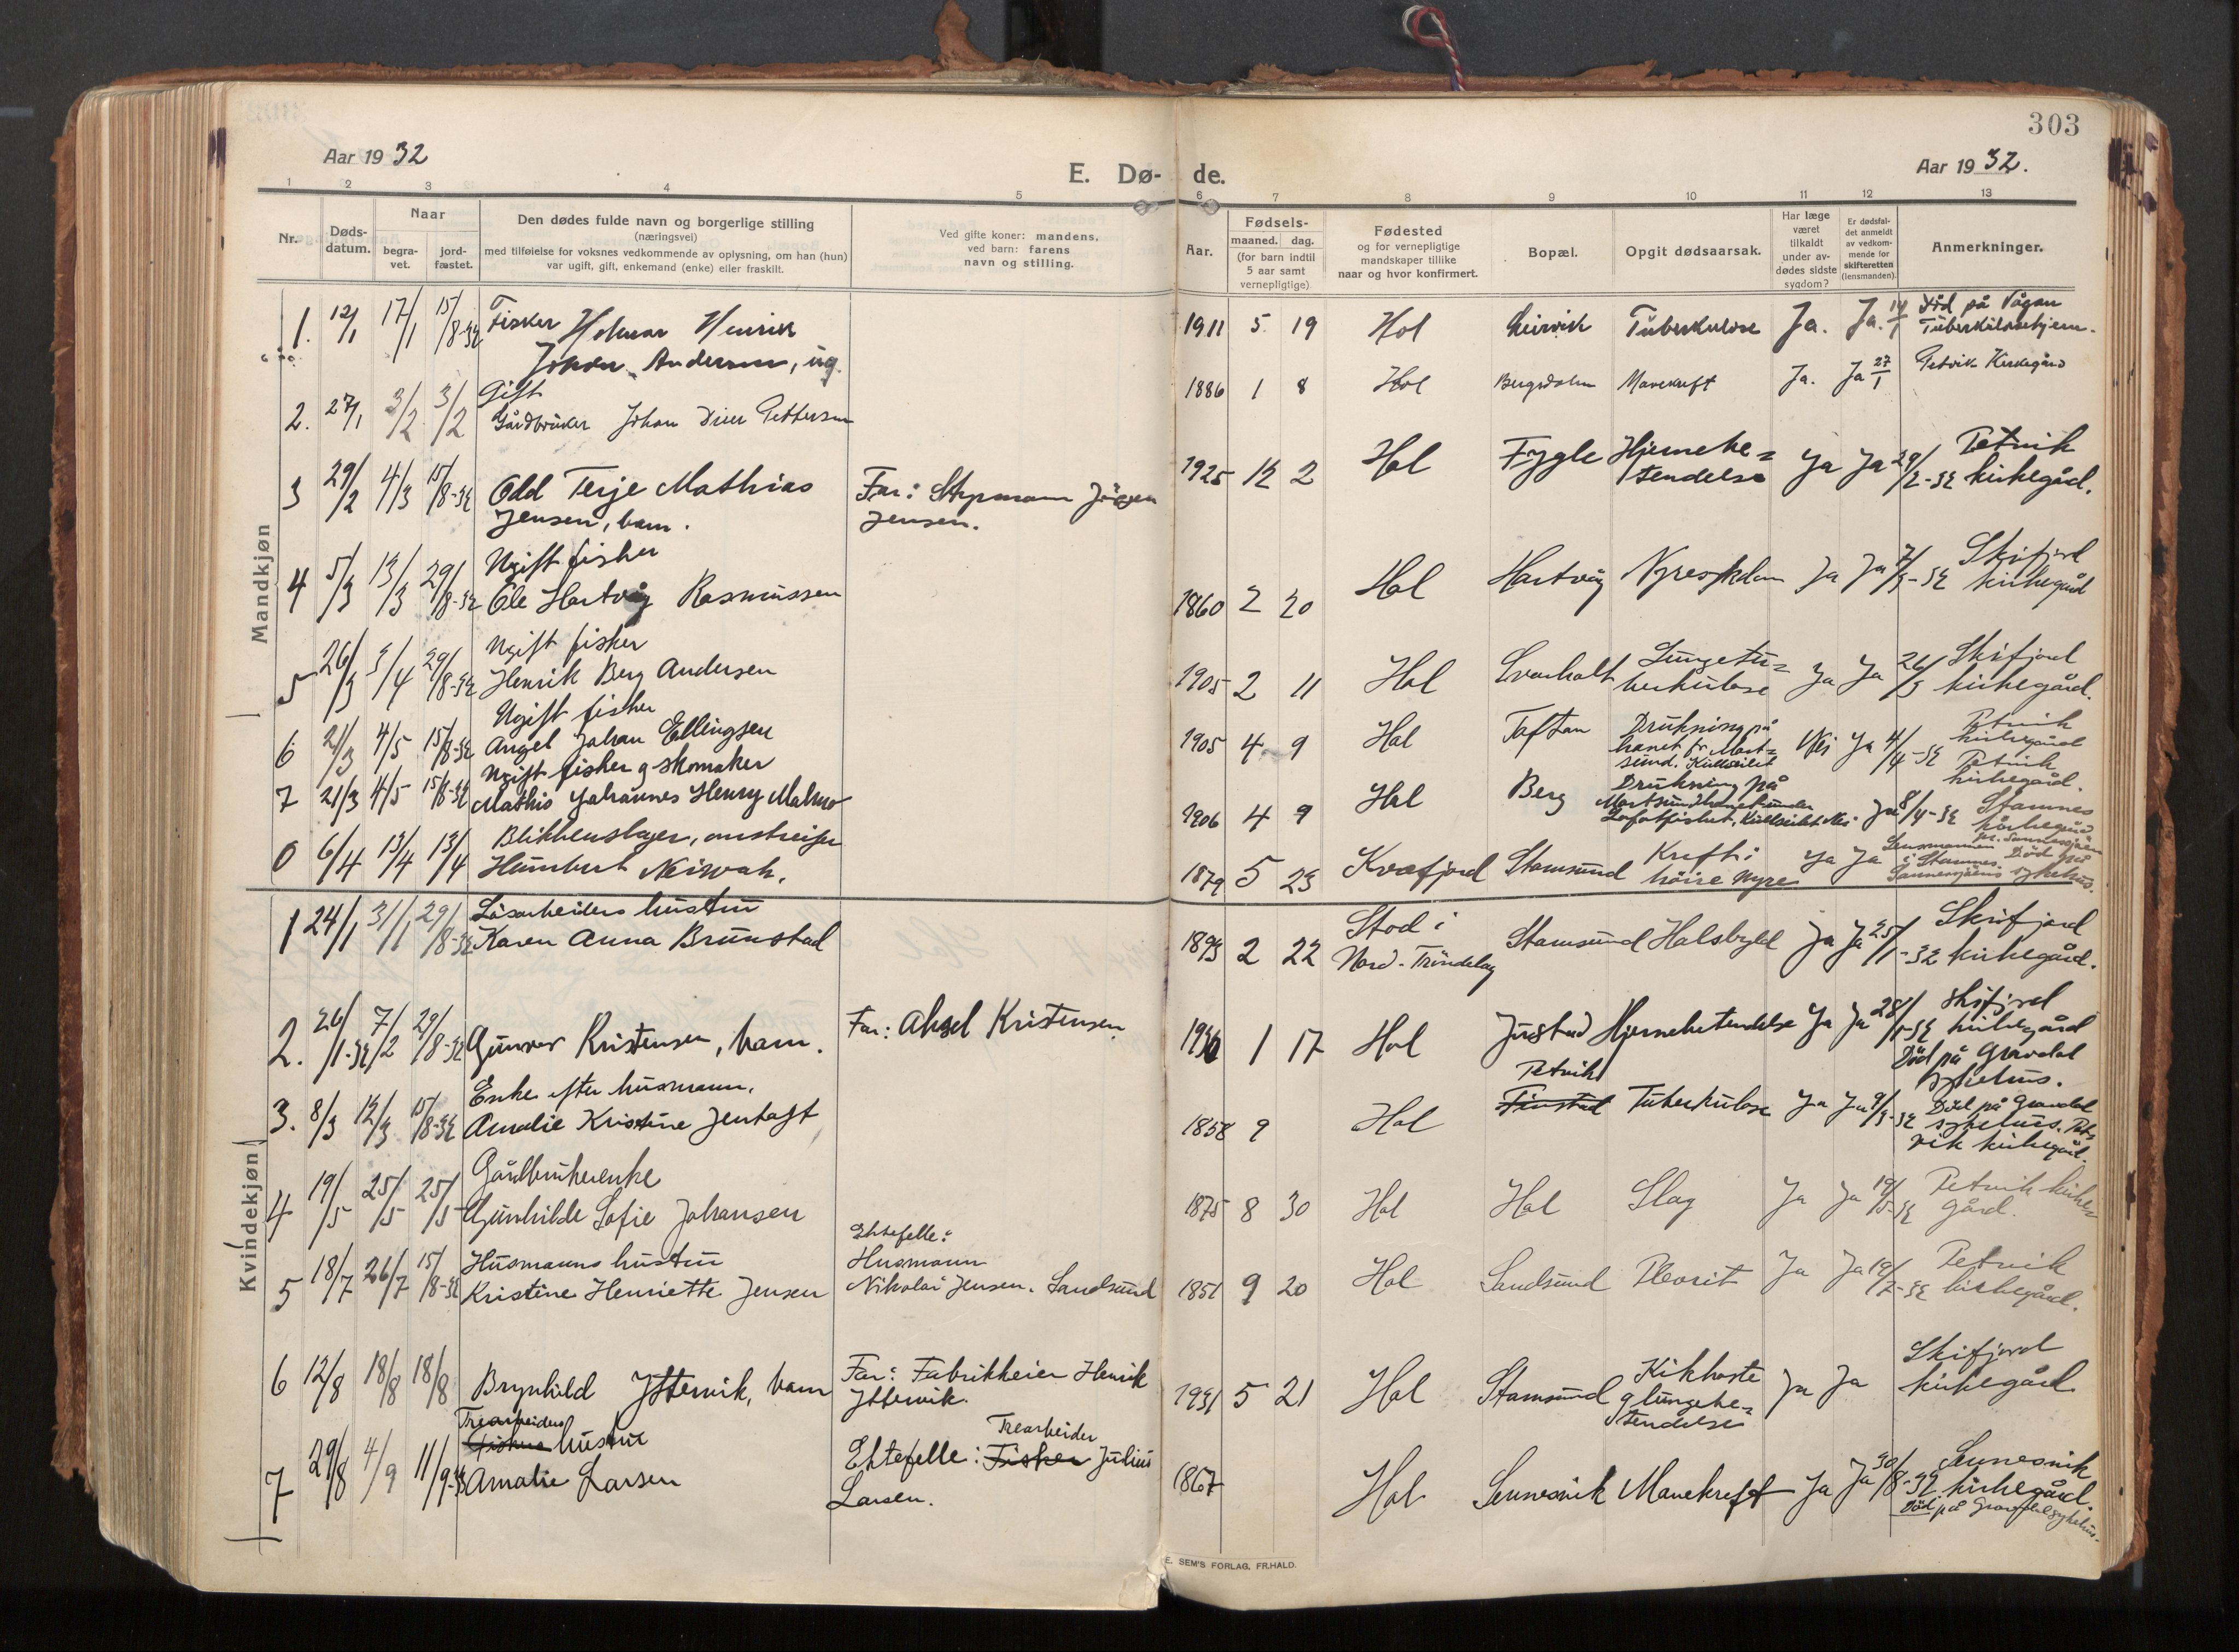 303
Aar 1932
E. Dø-
de.
Aar 1932.
1 2 3 4 5 6 7 8 9 10 11 12 13
Nr.
Døds-
datum.
Naar
begra-
vet.
jord-
fæstet.
Den dødes fulde navn og borgerlige stilling
(næringsvei)
med tilføielse for voksnes vedkommende av oplysning, om han (hun)
var ugift, gift, enkemand (enke) eller fraskilt.
Ved gifte koner: mandens,
ved barn: farens
navn og stilling.
Aar.
Fødsels-
maaned. dag.
(for barn indtil
5 aar samt
vernepligtige).
Fødested
og for vernepligtige
mandskaper tillike
naar og hvor konfirmert.
Bopæl.
Opgit dødsaarsak.
Har læge
været
tilkaldt
under av-
dødes sidste
sygdom?
Er dødsfal-
det anmeldt
av vedkom-
mende for
skifteretten
(lensmanden).
Anmerkninger.
Mandkjøn
1. 12/1 17/1 15/8-32 Fisker Henrik
Johan Andersen, ug.
1911 5 19 Hol Leirvik Tuberkulose Ja. Ja. 14/1 Död på Vågan
Tuberkulosehjem.
2. 27/1 3/2 3/2 Gift
Gårdbruker Johan Pettersen
1886 1 8 Hol Mavekreft Ja. Ja 27/1 Petvik Kirkegård
3 29/2 4/3 15/8-32 Odd Terje Mathias
Jensen, barn.
Far: Jörgen
Jensen.
1925 12 2 Hol Fygle Hjernebe=
tendelse Ja Ja 29/2-32 Petvik
kirkegård.
4 5/3 13/3 29/8-32 Ugift fisker
Ole Hartvåg Rasmussen
1860 2 20 Hol Hartvåg Nyresykdom Ja Ja 7/3-32 Skifjord
kirkegård
5 26/3 3/4 29/8-32 Ugift fisker
Henrik Berg Andersen
1905 2 11 Hol Svarholt Lungetu=
berkulose Ja Ja 26/3 Skifjord
kirkegård.
6 21/3 4/5 15/8-32 Ugift fisker
Angel Johan Ellingsen
1905 4 9 Hol Taftan Drukning på
havet fr. Mort=
sund. Kullseilet Nei Ja 4/4-32 Petvik
kirkegård
7 21/3 4/5 15/8-32 Ugift fisker og skomaker
Mathis Johannes Henry Malmo
1906 4 9 Hol Berg Drukning på
Mortsundhavet under
Lofotfisket. Kullseilet Nei Ja 8/4-32 Petvik
kirkegård.
0 6/4 13/4 13/4 Blikkenslager, omstreifer
Humbert
1879 5 23 Kvæfjord Stamsund Kreft i
höire nyre Ja Ja Stamnes
kirkegård
Lensmannen
i Stamnes. Död på
sykehus.
Kvindekjøn
1 24/1 31/1 29/8-32 Lösarbeiders hustru
Karen Anna Brunstad
1893 2 22 Stod i
Nord-Tröndelag Stamsund Halsbyld Ja Ja 25/1-32 Skifjord
kirkegård.
2. 26/1-32 7/2 29/8-32 Gunvor Kristensen, barn.
Far: Aksel Kristensen.
1 17 Hol Justad Hjernebetendelse Ja Ja 28/1-32 Skifjord
kirkegård
Död på Gravdal
sykehus.
3. 8/3 12/3 15/8-32 Enke efter husmann.
Amalie Kristine Jentoft
1858 9 Hol Petvik
Finstad Tuberkulose Ja Ja 9/3-32 Död på Gravdal
sykehus. Pet=
vik kirkegård.
4 19/5 25/5 25/5 Gårdbrukerenke
Gunhilde Sofie Johansen
1875 8 30 Hol Hol Slag Ja Ja 19/5-32 Petvik kirke=
gård.
5 18/7 26/7 15/8-32 Husmanns hustru
Kristine Henriette Jensen
Ektefelle:
Husmann
Nikolai Jensen. Sandsund
1851 9 20 Hol Sandsund Plevrit Ja Ja 19/7-32 Petvik
kirkegård.
6 12/8 18/8 18/8 Brynhild Yttervik, barn
Far: Fabrikkeier Henrik
Yttervik.
1931 5 21 Hol Stamsund Kikhoste
og lungebe=
tendelse Ja Ja Skifjord
kirkegård
7 29/8 4/9 11/9-32 Trearbeiders
Fiskers hustru
Amalie Larsen
Trearbeider
Ektefelle: Fisker Julius
Larsen.
1867 Hol Sennesvik Mavekreft Ja Ja 30/8-32 Sennesvik
kirkegård.
Död på Gravdal sykehus.
E. SEM'S FORLAG, FR.HALD.